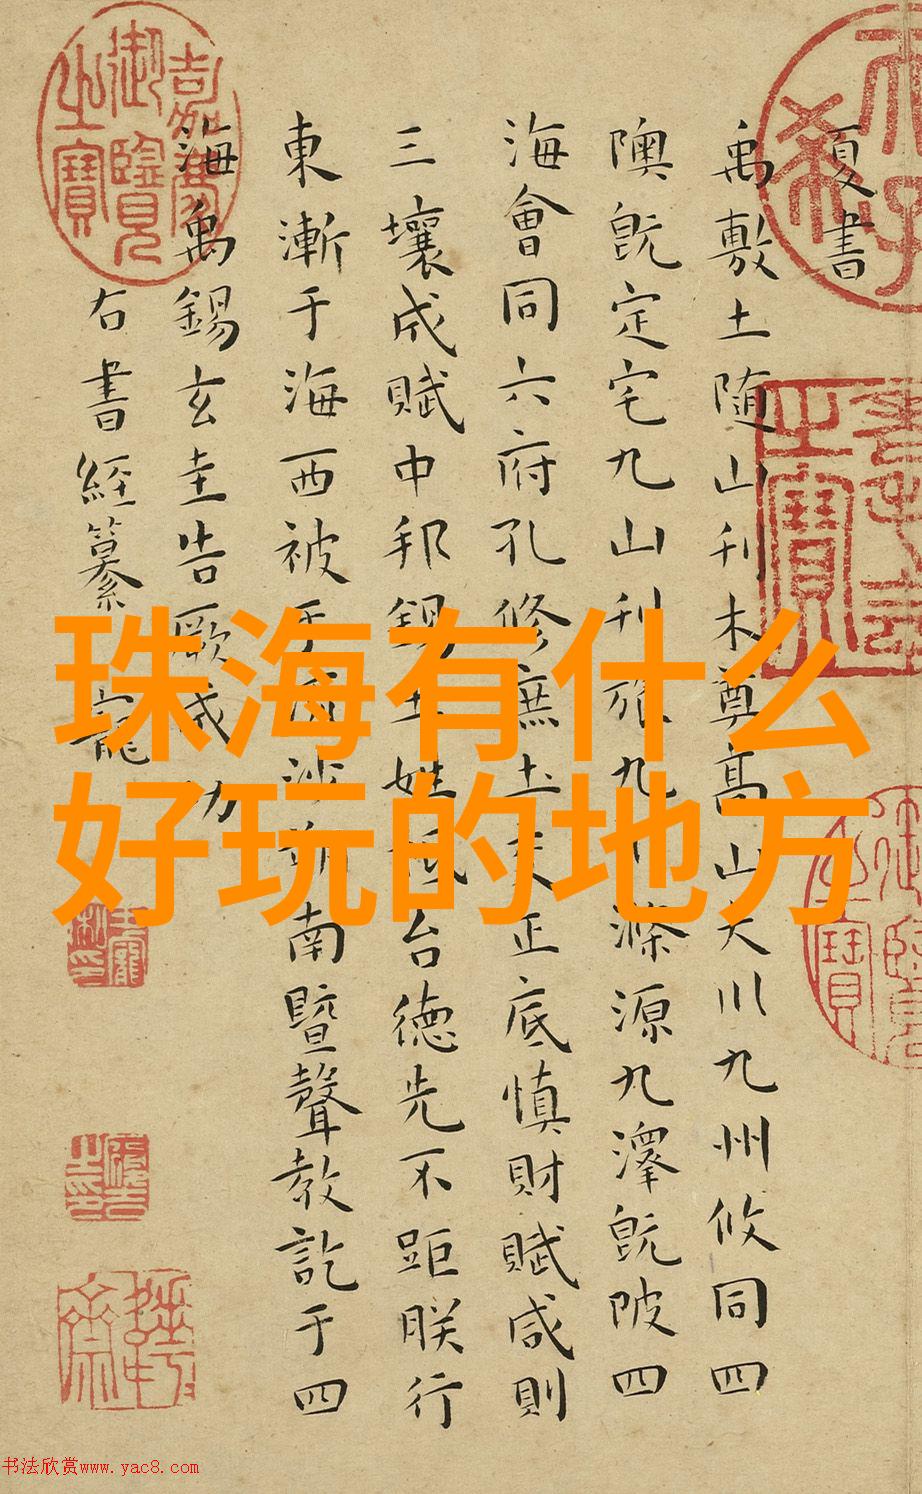 珠海有什么
好玩的地方
夏書
禹敷土随山刊木尊高山大川九州攸同四
隩既定宅九山刊旅九川滌源九澤既陂四
海會同六府孔修庶土交正底慎財賦咸則
三壤成賦中邦錫土姓祗台德先不距朕行
東漸于海西被于流沙朔南暨聲教訖于四
海禹錫玄圭告厥成功
右書經纂 寵
嘉慶御覽之寶
书法欣赏www.yac8.com